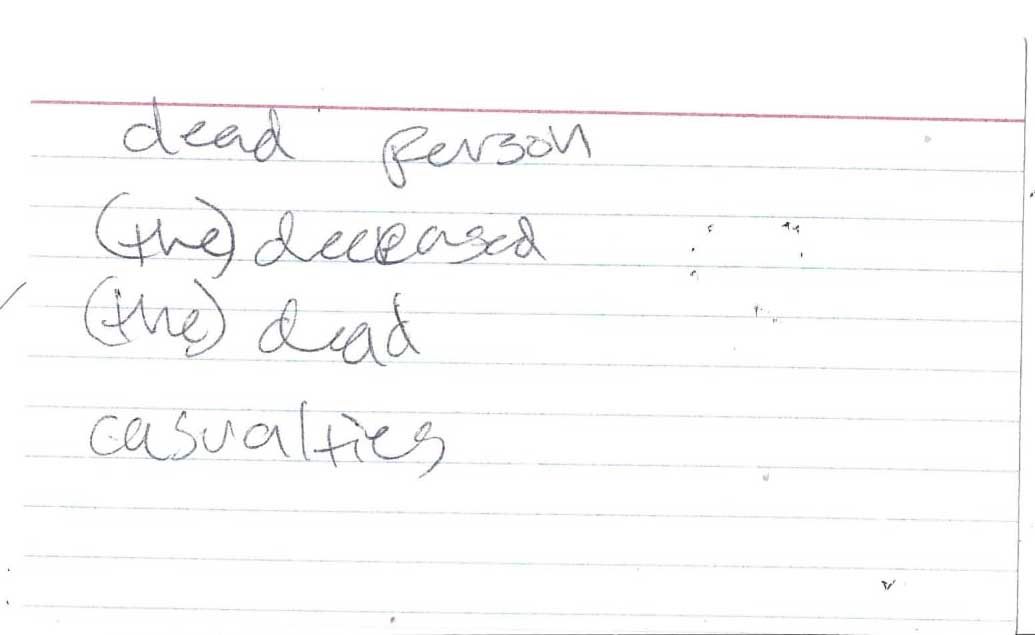 dead person
(the) deceased
(the) dead
casualties